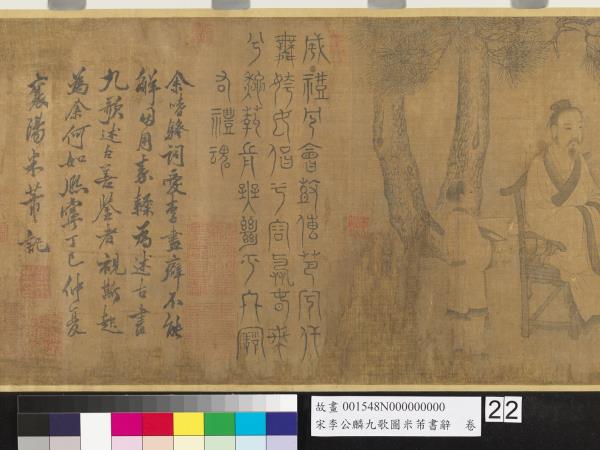 成禮兮會鼓傳芭兮代
舞姱女倡兮容與春蘭
兮秋菊長無絕兮終古
右禮魂
余嗜騷詞愛李畫癖不能
解因用素縑為述古書
九歌述古善鑒者視斯
為余何如熙寧丁巳仲夏
襄陽米芾記
故畫 001548N000000000
宋李公麟九歌圖米芾書辭 卷
22